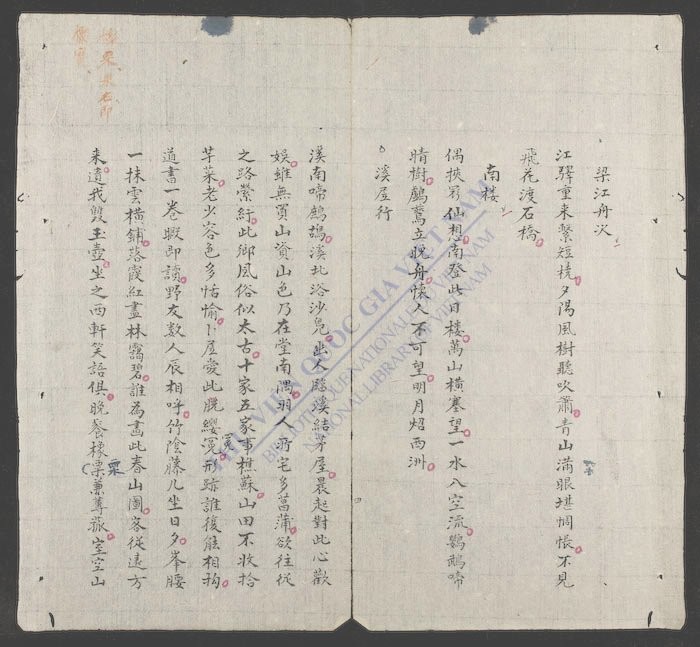 梁江舟次
江驛重来繫短橈夕陽風樹聽吹簫青山滿眼堪惆悵不見
飛花渡石橋
南楼
偶挾昜仙想南登此日楼萬山橫塞望一水入空流鸚鵡啼
晴樹鸕鶿立晚舟懷人不可望明月炤西洲
溪屋行
溪南啼鷓鴣溪北浴沙鳧幽人臨溪結茅屋晨起對此心歡
娛雖無買山資山色乃在堂南隅羽人所宅多菖蒲欲往従
之路縈紆此鄉風俗似太古十家五家事樵蘇山田不收拾
芋菜老少容色多恬愉卜屋愛此脱纓冕形跡誰復能相拘
冕
道書一卷暇即讀野友数人辰相呼竹陰藤几坐日夕峯腰
一抹雲橫鋪落霞紅盡林靄碧誰為畫此春山圖客從遠方
来遺我雙玉壺坐之西軒笑語俱晚餐橡栗兼蓴菰室空山
栗
THƯ VIỆN QUỐC GIA VIỆT NAM
BIBLIOTHEQUE NATIONALE DU VIETNAM
NATIONAL LIBRARY OF VIETNAM